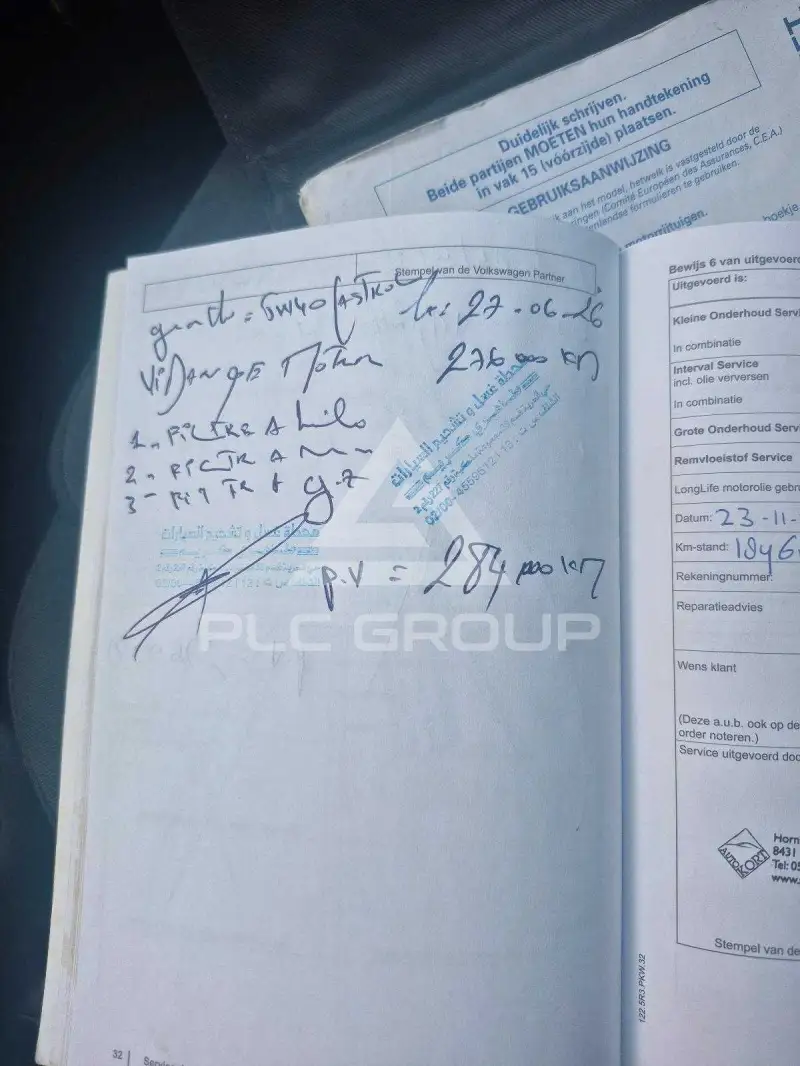 Duidelijk schrijven.
Beide partijen MOETEN hun handtekening
in vak 15 (vóórzijde) plaatsen.
GEBRUIKSAANWIJZING
aan het model, hetwelk is vastgesteld door de
(Comité Européen des Assurances, C.E.A.)
formulieren te gebruiken.
motorrijtuigen.
Stempel van de Volkswagen Partner
5W40 CASTROL le: 27-06-26
ViDANGE MOTEUR 276 000 KM
1. FILTRE A huile
2. FILTRE A
3- FILTRE A
محطة غسل و تشحيم السيارات
P.V = 284 000 KM
PLC GROUP
32
Bewijs 6 van uitgevoerd
Uitgevoerd is:
Kleine Onderhoud Servi
In combinatie
Interval Service
incl. olie verversen
In combinatie
Grote Onderhoud Servi
Remvloeistof Service
LongLife motorolie gebr
Datum: 23-11-
Km-stand: 1846
Rekeningnummer:
Reparatieadvies
Wens klant
(Deze a.u.b. ook op de
order noteren.)
Service uitgevoerd doo
AUTOKORT
Horn
8431
Tel: 05
www.
Stempel van de
122.5R3.PKW.32